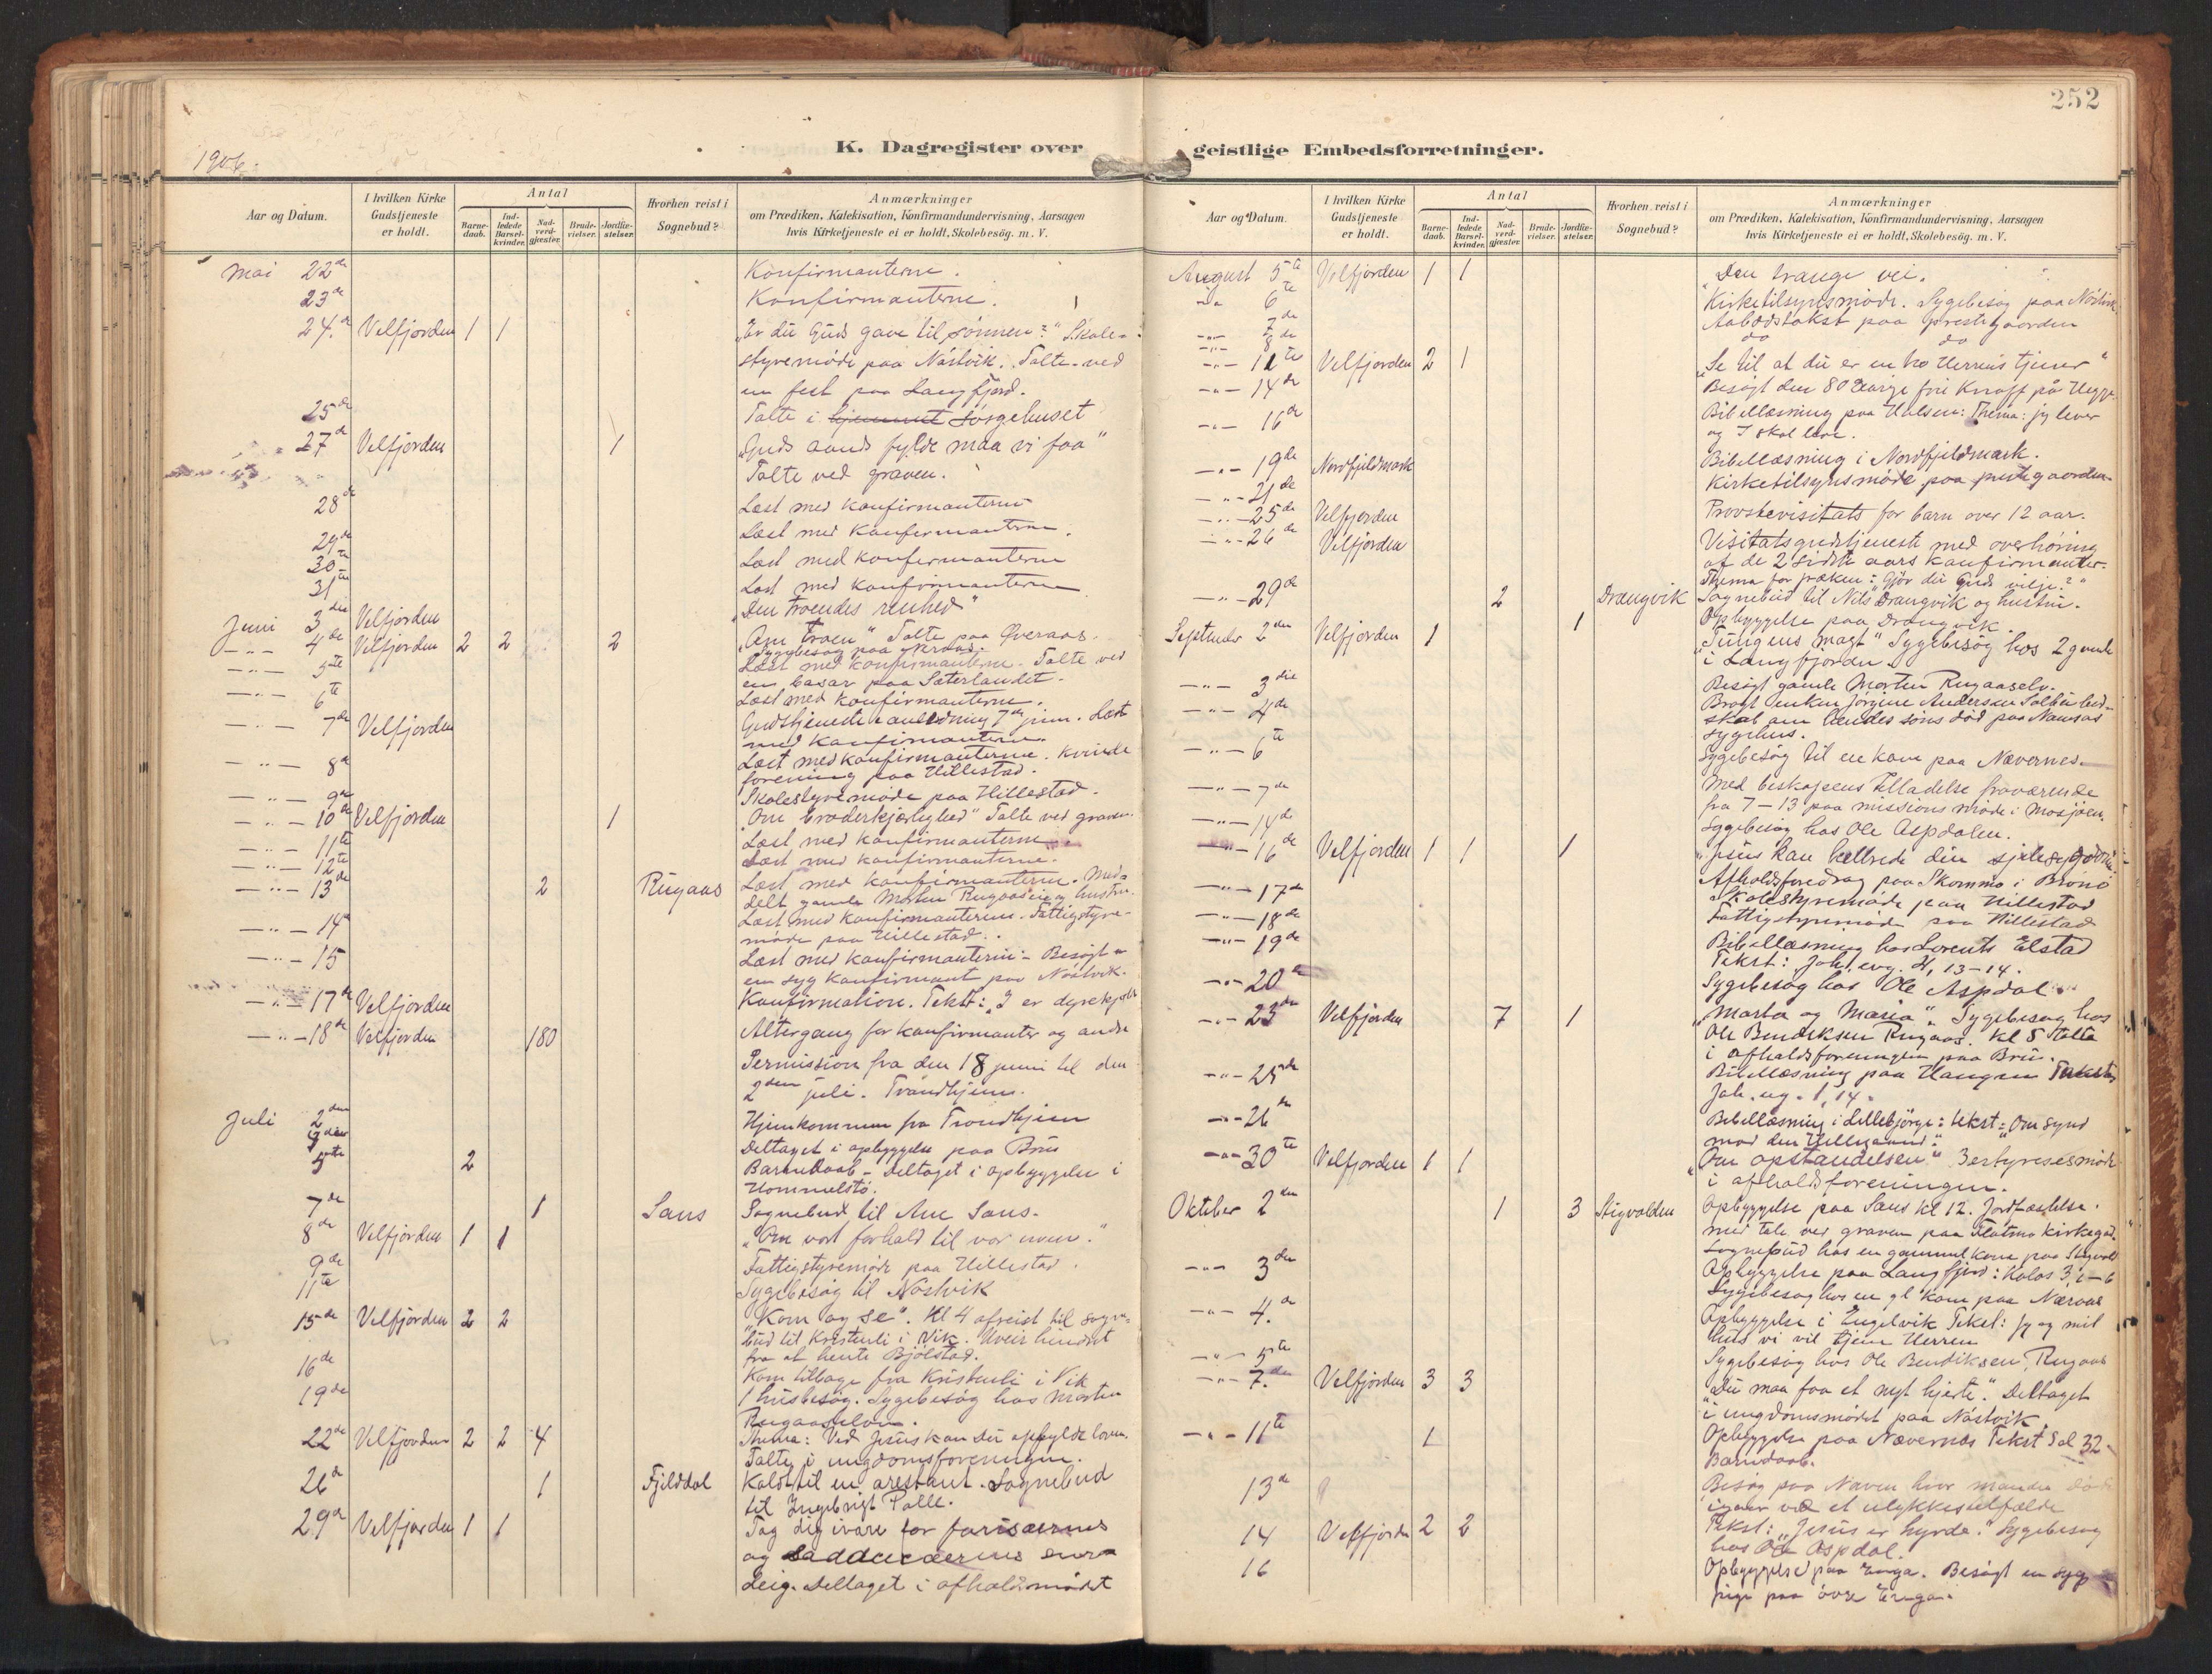 252
1906.
K. Dagregister over geistlige Embedsforretninger.
Aar og Datum. I hvilken Kirke Gudstjeneste er holdt. Antal Barnedaab. Indledede Barselkvinder. Nadverdgjæster. Brudevielser. Jordfæstelser. Hvorhen reist i Sognebud? Anmærkninger om Prædiken, Katekisation, Konfirmandundervisning, Aarsagen hvis Kirketjeneste ei er holdt, Skolebesög. m. V.
Mai 22de Konfirmanterne.
23de Konfirmanterne.
24de Velfjorden 1 1 "Er du Guds gave til sönnen?" Skole-
styremöde paa Nöstvik. Talte ved
en fest paa Langfjord.
25de Talte i hjemmet sörgehuset
27de Velfjorden 1 "Guds aands fylde maa vi faa"
Talte ved graven.
28de Læst med konfirmanterne
29de Læst med konfirmanterne.
30te Læst med konfirmanterne
31te Læst med konfirmanterne
Juni 3die Velfjorden "Den troendes renhed"
4de Velfjorden 2 2 2 "Om troen" Talte paa Överaas.
Sygebesög paa
5te Læst med konfirmanterne. Talte ved
en basar paa Sæterlandet.
6te Læst med konfirmanterne.
7de Velfjorden Gudstjeneste i anledning 7de juni. Læst
med konfirmanterne.
8de Læst med konfirmanterne. Kvinde
forening paa Hillestad.
9de Skolestyremöde paa Hillestad.
10de Velfjorden 1 "Om broderkjærlighed" Talte ved graven.
11te Læst med konfirmanterne
12te Læst med konfirmanterne.
13de 2 Rugaas Læst med konfirmanterne. Med-
delt gamle Morten Rugaas og hustru.
14de Læst med konfirmanterne. Fattigstyre-
möde paa Hillestad.
15 Læst med konfirmanterne. Besögt
en syg konfirmant paa Nöstvik.
17de Velfjorden Konfirmation. Tekst: "I er dyrekjöbt
18de Velfjorden 180 Altergang for konfirmanter og andre
Permission fra den 18 juni til den
2den juli. Trondhjem.
Juli 2den Hjemkommen fra Trondhjem
3die Deltaget i opbyggelse paa Brus
5te 2 Barnedaab - Deltaget i opbyggelse i
Hommelstö.
7de 1 Saus Sognebud til Ane Saus.
8de Velfjorden 1 1 "Om vort forhold til vor uven."
9de Fattigstyremöde paa Hillestad.
11te Sygebesög til Nöstvik
15de Velfjorden 2 2 "Kom og se". Kl 4 afreist til sogne-
bud til Kristenli i Vik. Uveir hindret
fra at hente Bjölstad.
16de Kom tilbage fra Kristenli i Vik
19de 1 husbesög. Sygebesög hos Morten
Rugaaselven.
22de Velfjorden 2 2 4 Thema: Ved Jesus kan du opfylde loven.
Talte i ungdomsforeningen.
26de 1 Fjelddal Kaldt til en arrestant. Sognebud
til Ingebrigt Palle.
29de Velfjorden 1 1 Tag dig ivare for farisæernes
og sadducæernes sur-
deig. Deltaget i afholdsmödet
Aar og Datum. I hvilken Kirke Gudstjeneste er holdt. Antal Barnedaab. Indledede Barselkvinder. Nadverdgjæster. Brudevielser. Jordfæstelser. Hvorhen reist i Sognebud? Anmærkninger om Prædiken, Katekisation, Konfirmandundervisning, Aarsagen hvis Kirketjeneste ei er holdt, Skolebesög. m. V.
August 5te Velfjorden 1 1 "Den trange vei.
6te Kirketilsynsmöde. Sygebesög paa Nöstvik
7de Aabodstakst paa prestegaarden
8de do do
12te Velfjorden 2 1 "Se til at du er en tro Herrens tjener"
14de Besögt den 80 aarige frue Knoff på Hegge.
16de Bibellæsning paa Hulsen: Thema: jeg lever
og I skal leve.
19de Nordfjeldmark Bibellæsning i Nordfjeldmark.
21de Kirketilsynsmöde paa prestegaarden.
25de Velfjorden Provstevisitats for barn over 12 aar.
26de Velfjorden Visitatsgudstjeneste med overhöring
af de 2 sidste aars konfirmanter.
Thema for præken: "Gjör du Guds vilje?"
29de 2 Drangvik Sognebud til Nils Drangvik og hustru.
1 Opbyggelse paa Drangvik.
September 2den Velfjorden 1 "Tungens magt" Sygebesög hos 2 gamle
i Langfjorden.
3die Besögt gamle Morten Rugaaselv.
4de Bragt enken Jörgine Andersen Solbær bud-
skab om hendes söns död paa Namsos
sygehus.
6te Sygebesög til en kone paa Nævernes.
7de Med biskopens tilladelse fraværende
fra 7-13 paa missionsmöde i Mosjöen.
14de Sygebesög hos Ole Aspdalen.
16de Velfjorden 1 1 1 "Jesus kan helbrede din sjelesygdom"
17de Afholdsforedrag paa Skommo i Brönö
18de Skolestyremöde paa Hillestad
19de Fattigstyremöde paa Hillestad
Bibellæsning hos Lorents Elstad
Tekst: Joh. evg. 4, 13-14.
20de Sygebesög hos Ole Aspdal.
23de Velfjorden 7 1 "Marta og Maria". Sygebesög hos
Ole Bendiksen Rugaas. Kl 5 talte
i afholdsforeningen paa Brus.
25de Bibellæsning paa Haugen Tekst
Joh. evg. 1, 14.
26de Bibellæsning i Lillebjörge: tekst: "Om synd
mod den Helligaand."
30te Velfjorden 1 1 "Om opstandelsen". Bestyrelsesmöde
i afholdsforeningen.
Oktober 2den 1 3 Stigvolden Opbyggelse paa Saus kl 12. Jordfæstelse.
med tale ved graven paa Flatmo kirkegd.
Sognebud hos en gammel kone paa Stigvold
3die Opbyggelse paa Langfjord: Kolos 3, 1-6
Sygebesög hos en gl kone paa Nævvas
4de Opbyggelse i Engelvik Tekst: Jeg og mit
hus vi vil tjene Herren
5te Sygebesög hos Ole Bendiksen, Rugaas
7de Velfjorden 3 3 "Du maa faa et nyt hjerte." Deltaget
i ungdomsmödet paa Nöstvik.
11te 1 Opbyggelse paa Nævernes Tekst Sal 32
Barnedaab.
13de Besög paa Naven hvor manden döde
igaar ved et ulykkestilfælde
14 Velfjorden 2 2 Tekst: "Jesus er hyrde." Sygebesög
hos Ole Aspdal.
16 Opbyggelse paa Eunga. Besögt en syg
pige paa övre